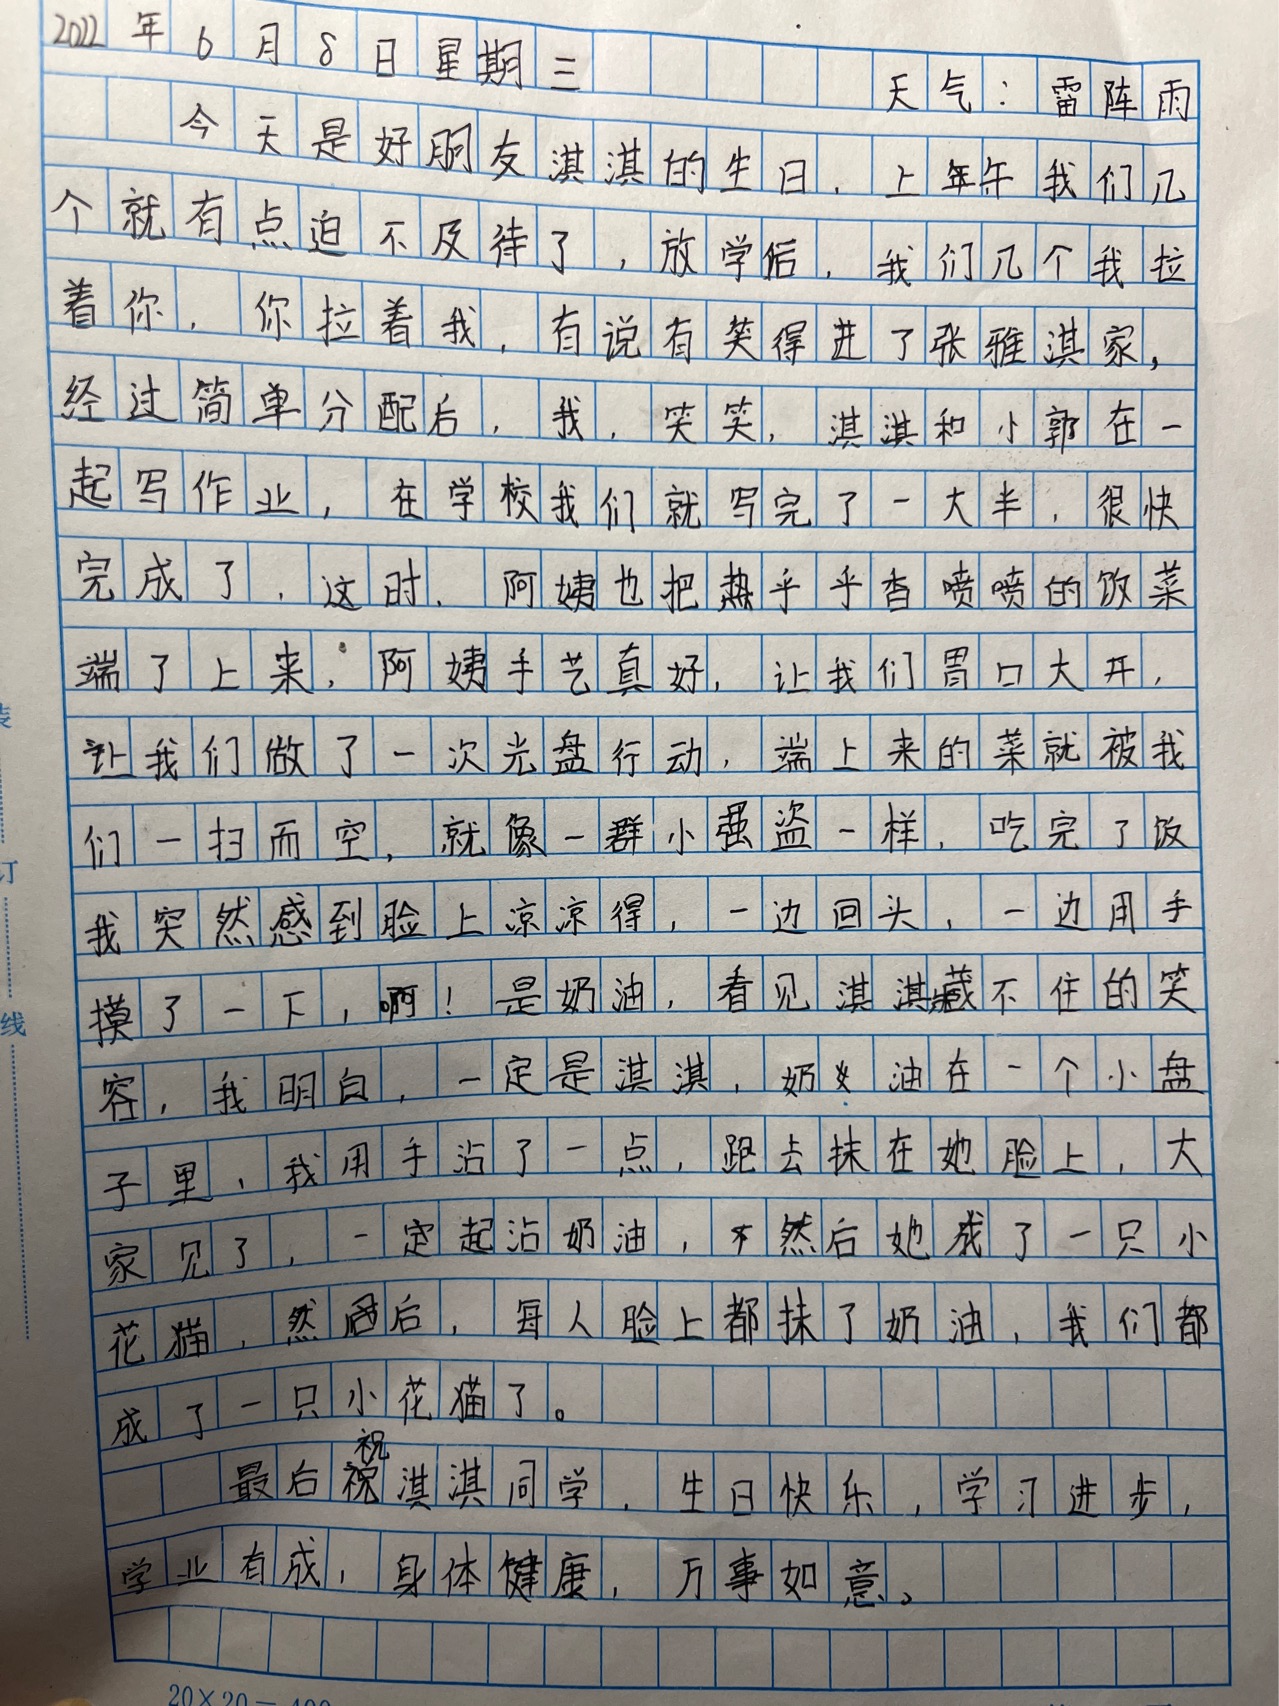 2022年6月8日星期三 天气：雷阵雨
今天是好朋友淇淇的生日，上年午我们几
个就有点迫不及待了，放学后，我们几个我拉
着你，你拉着我，有说有笑得进了张雅淇家，
经过简单分配后，我，笑笑，淇淇和小郭在一
起写作业，在学校我们就写完了一大半，很快
完成了，这时，阿姨也把热乎乎香喷喷的饭菜
端了上来，阿姨手艺真好，让我们胃口大开，
让我们做了一次光盘行动，端上来的菜就被我
们一扫而空，就像一群小强盗一样，吃完了饭
我突然感到脸上凉凉得，一边回头，一边用手
摸了一下，啊！是奶油，看见淇淇藏不住的笑
容，我明白，一定是淇淇，奶油在一个小盘
子里，我用手沾了一点，跑去抹在她脸上，大
家见了，一定起沾奶油，然后她成了一只小
花猫，然后，每人脸上都抹了奶油，我们都
成了一只小花猫了。
祝
最后祝淇淇同学，生日快乐，学习进步，
学业有成，身体健康，万事如意。
装
订
线
20×20=400